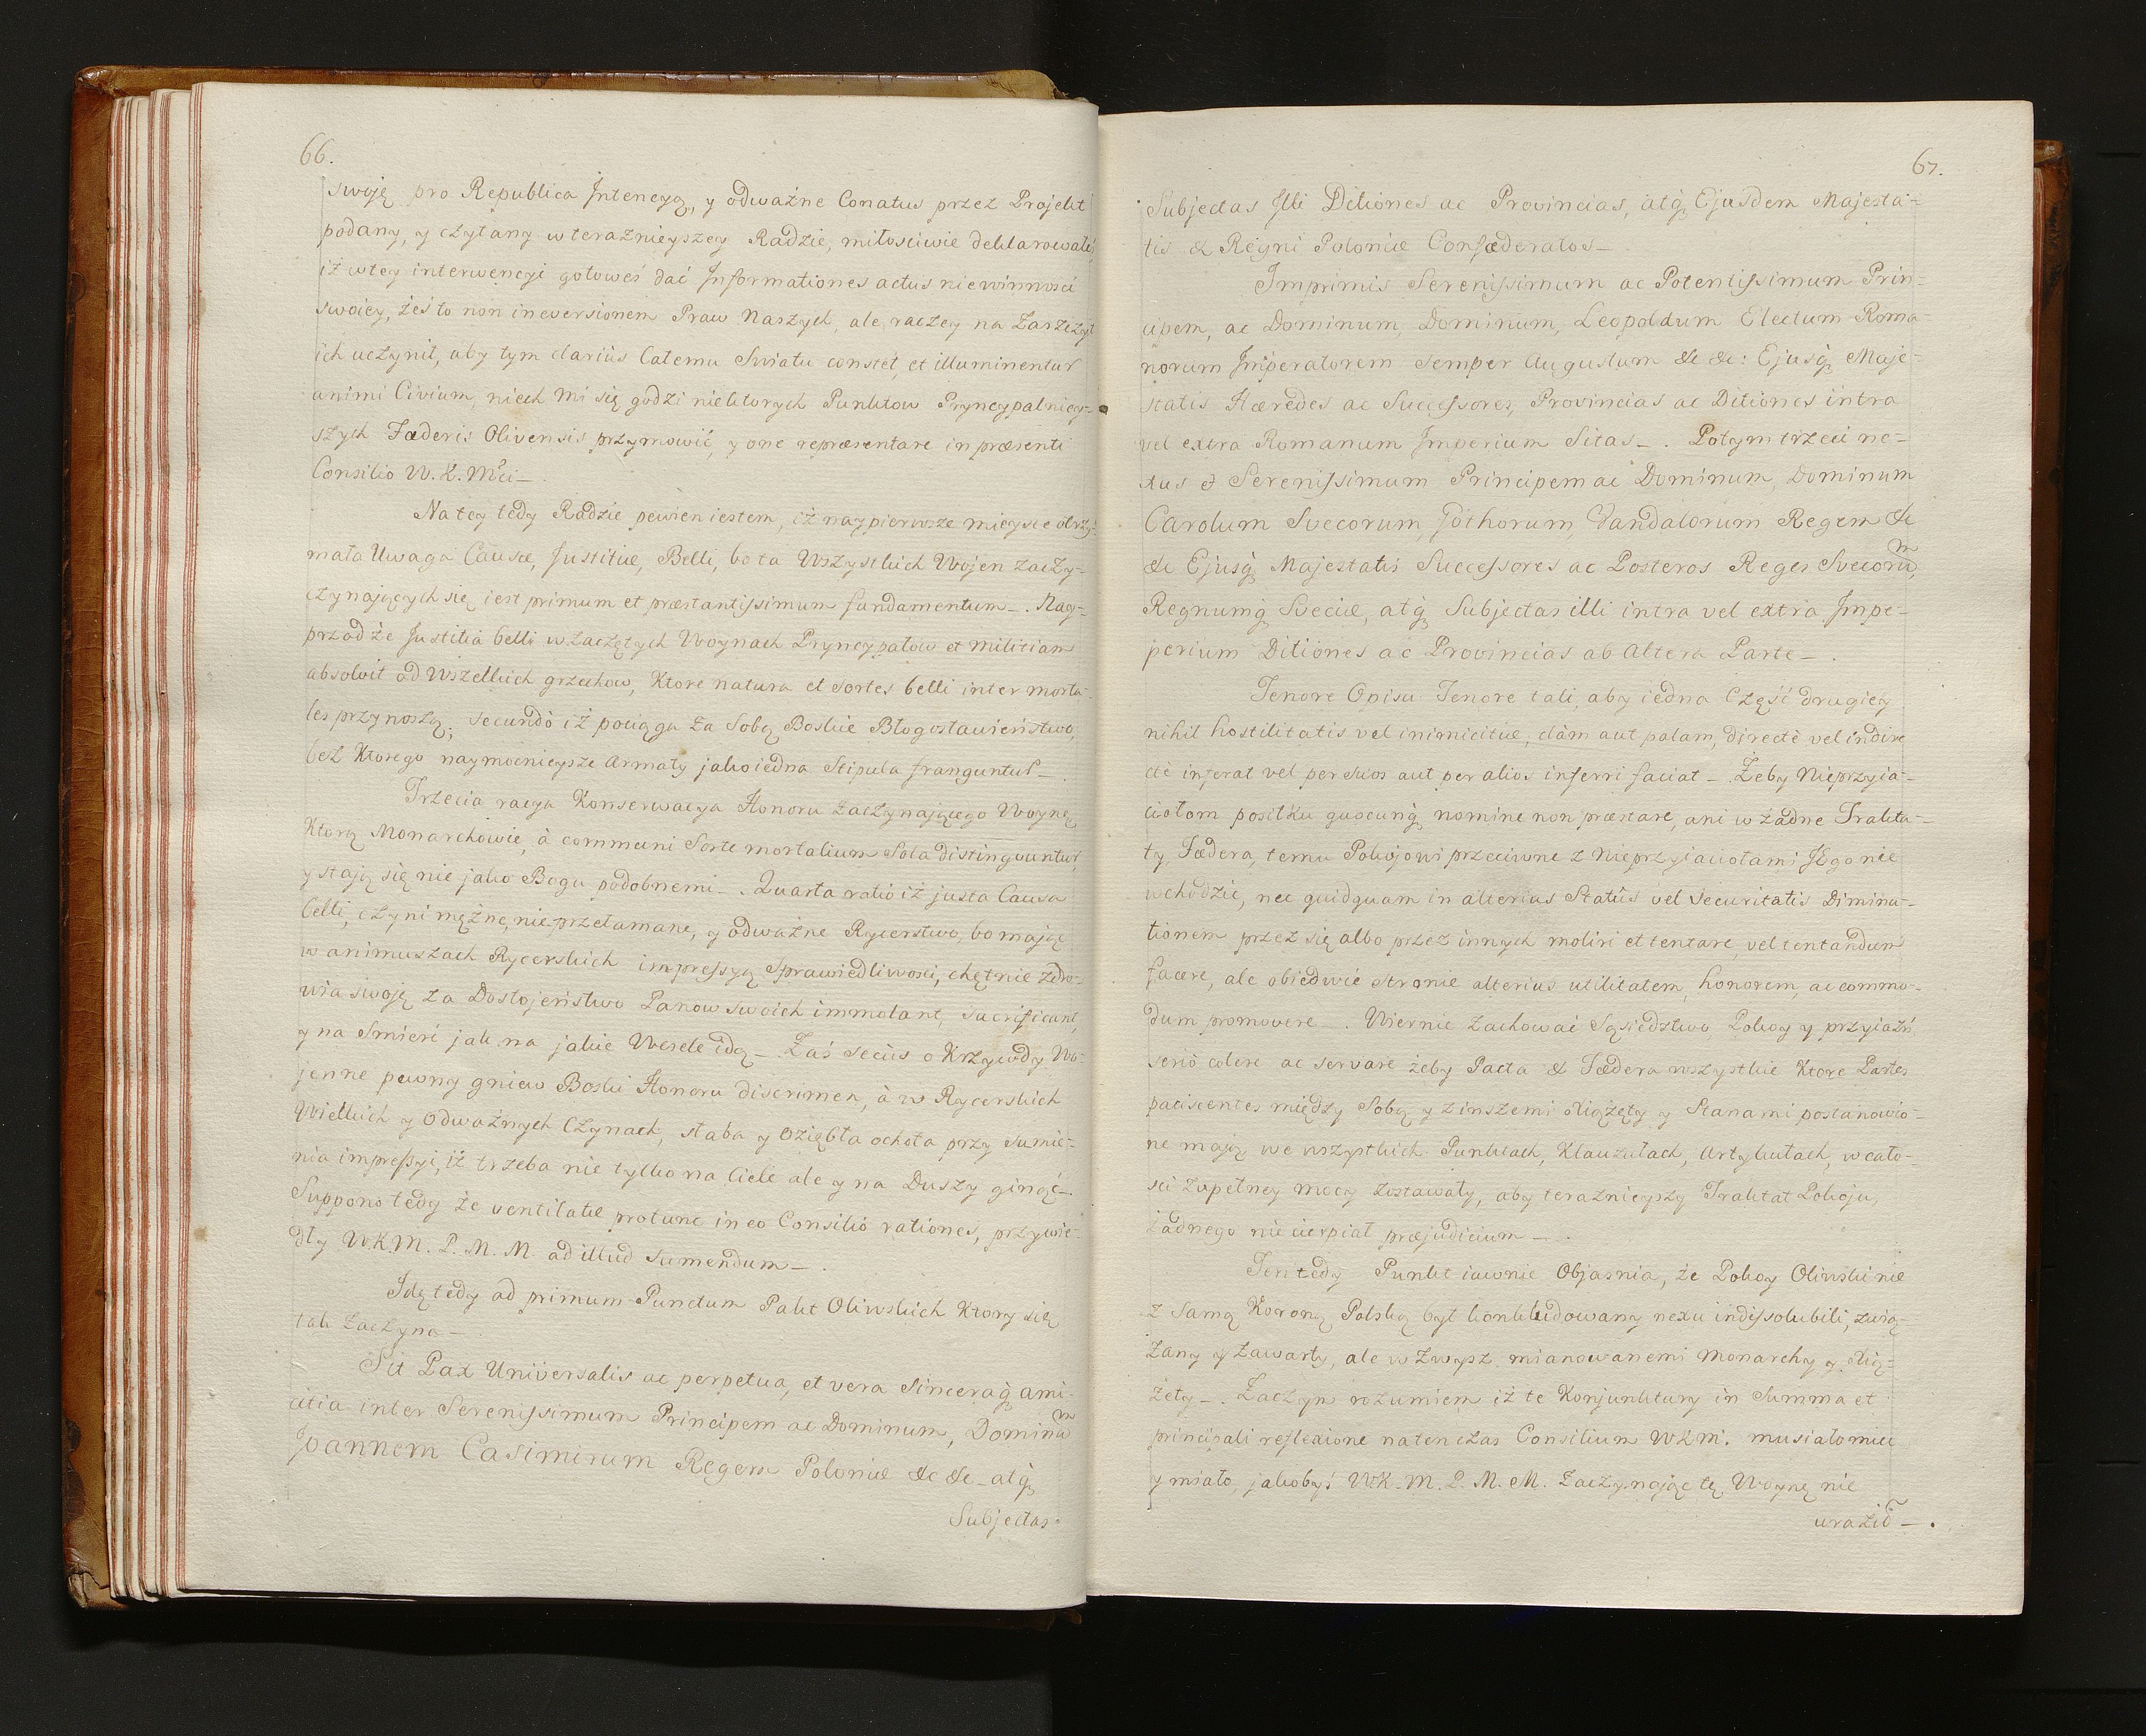 66.
swoję pro Republica Intencyą, y odważne Conatus przez Projekt
podany, y czytany w teraznieyszey Radzie, miłosciwie deklarowałeś
iż w tey interwencyi gotoweś dać Informationes actus niewinnosci
swoiey, żeś to non in eversionem Praw Naszych, ale raczey na Zaszczyt
ich uczynił, aby tym clariùs Całemu Swiatu constet, et illuminentur
animi Civium, niech mi się godzi niektorych Punktow Pryncypalniey-
szych Fæderis Olivensis przymowić, y one repræsentare in præsenti
Consilio W. K. Mci_
Na tey tedy Radzie pewien iestem, iż naypierwsze mieysce otrzy-
mała Uwaga Causæ, Justitiæ, Belli, bo ta Wszystkich Wojen zaczy-
czynających się iest primum et præstantissimum fundamentum_. Nay-
przod że Justitia belli w zaczętych Woynach Pryncypałow et militiam
absolvit od Wszelkich grzechow, Ktore natura et sortes belli inter morta-
les przynoszą; secundò iż pociąga za Sobą Boskie Błogosławieństwo,
bez Ktorego naymocnieysze Armaty jako iedna Stipula franguntur_
Trzecia racya Konserwacya Honoru zaczynającego Woynę
Ktorą Monarchowie, à communi Sorte mortalium Sola distinguuntur,
y stają się nie jako Bogu podobnemi_. Quarta ratio iż justa Causa
belli, czyni mężne, nieprzełamane, y odważne Rycerstwo, bo mając
w animuszach Rycerskich impressyą Sprawiedliwosci, chętnie zdro-
wia swoję za Dostojeństwo Panow swoich immolant, sacrificant,
y na Smierć jak na jakie Wesele idą_ Zaś secùs o Krzywdy Wo-
jenne pewny gniew Boski Honoru discrimen, à w Rycerskich
Wielkich y Odważnych Czynach, słaba y Oziębła ochota przy sumie-
nia impressyi, iż trzeba nie tylko na Ciele ale y na Duszy ginąć_
Suppono tedy że ventilatæ protunc in eo Consilio rationes, przywie-
dły W.K.M. P. M. M. ad illud Sumendum_.
Idę tedy ad primum Punctum Pakt Oliwskich Ktory się
tak zaczyna_
Sit Pax Universalis ac perpetua, et vera Sinceraq; ami-
citia inter Serenissimum Principem ac Dominum, Dominũ
Joannem Casimirum Regem Poloniæ &c &c_ atq;
Subjectas
67.
Subjectas Illi Ditiones ac Provincias, atq; Ejusdem Majesta-
tis & Regni Poloniæ Confæderatos_
Imprimis Serenissimum ac Potentissimum Prin-
cipem, ac Dominum, Dominum, Leopoldum Electum Roma-
norum Imperatorem semper Augustum &c &c: Ejusq; Maje-
statis Hæredes ac Successores, Provincias ac Ditiones intra
vel extra Romanum Imperium Sitas_. Potym trzeci ne-
xus Serenissimum Principem ac Dominum, Dominum
Carolum Svecorum, Gothorum, Vandalorum Regem &c
&c Ejusq; Majestatis Successores ac Posteros Reges Svecorũ,
Regnumq; Sveciæ, atq; Subjectas illi intra vel extra Impe-
perium Ditiones ac Provincias ab Altera Parte_.
Tenore Opisu Tenore tali, aby iedna Część drugiey
nihil hostilitatis vel inimicitiæ, clàm aut palam, directè vel indire
ctè inferat vel per suos aut per alios inferri faciat_ Żeby Nieprzyia-
ciołom posiłku quocunq; nomine non præstare, ani w żadne Trakta-
ty, Fædera, temu Pokojowi przeciwne z Nieprzyiaciołami Jego nie
wchodzić, nec quidquam in alterius Statûs vel Securitatis Diminu-
tionem przez się albo przez innych moliri et tentare, vel tentandum
facere, ale obiedwie stronie alterius utilitatem, honorem, ac commo-
dum promovere_. Wiernie zachować Sąsiedztwo Pokoy y przyiaźń
seriò colere ac servare żeby Pacta & Fædera wszystkie Ktore Partes
paciscentes między Sobą y z inszemi Xiążęty y Stanami postanowio-
ne mają we wszystkich Punktach, Klauzułach, Artykułach, w cało-
sci zupełney mocy zostawały, aby teraznieyszy Traktat Pokoju,
żadnego nie cierpiał præjudicium_.
Ten tedy Punkt iawnie Objasnia, że Pokoy Oliwski nie
z Samą Koroną Polską był konkludowany nexu indissolubili, zwią-
zany y zawarty, ale w zwysz mianowanemi Monarchy y Xią-
żęty_. Zaczym rozumiem iż te Konjunktury in Summa et
principali reflexione natenczas Consilium WKM. musiało mieć
y miało, jakobyś W.K.M. P. M. M. Zaczynając tę Woynę nie
uraził_.